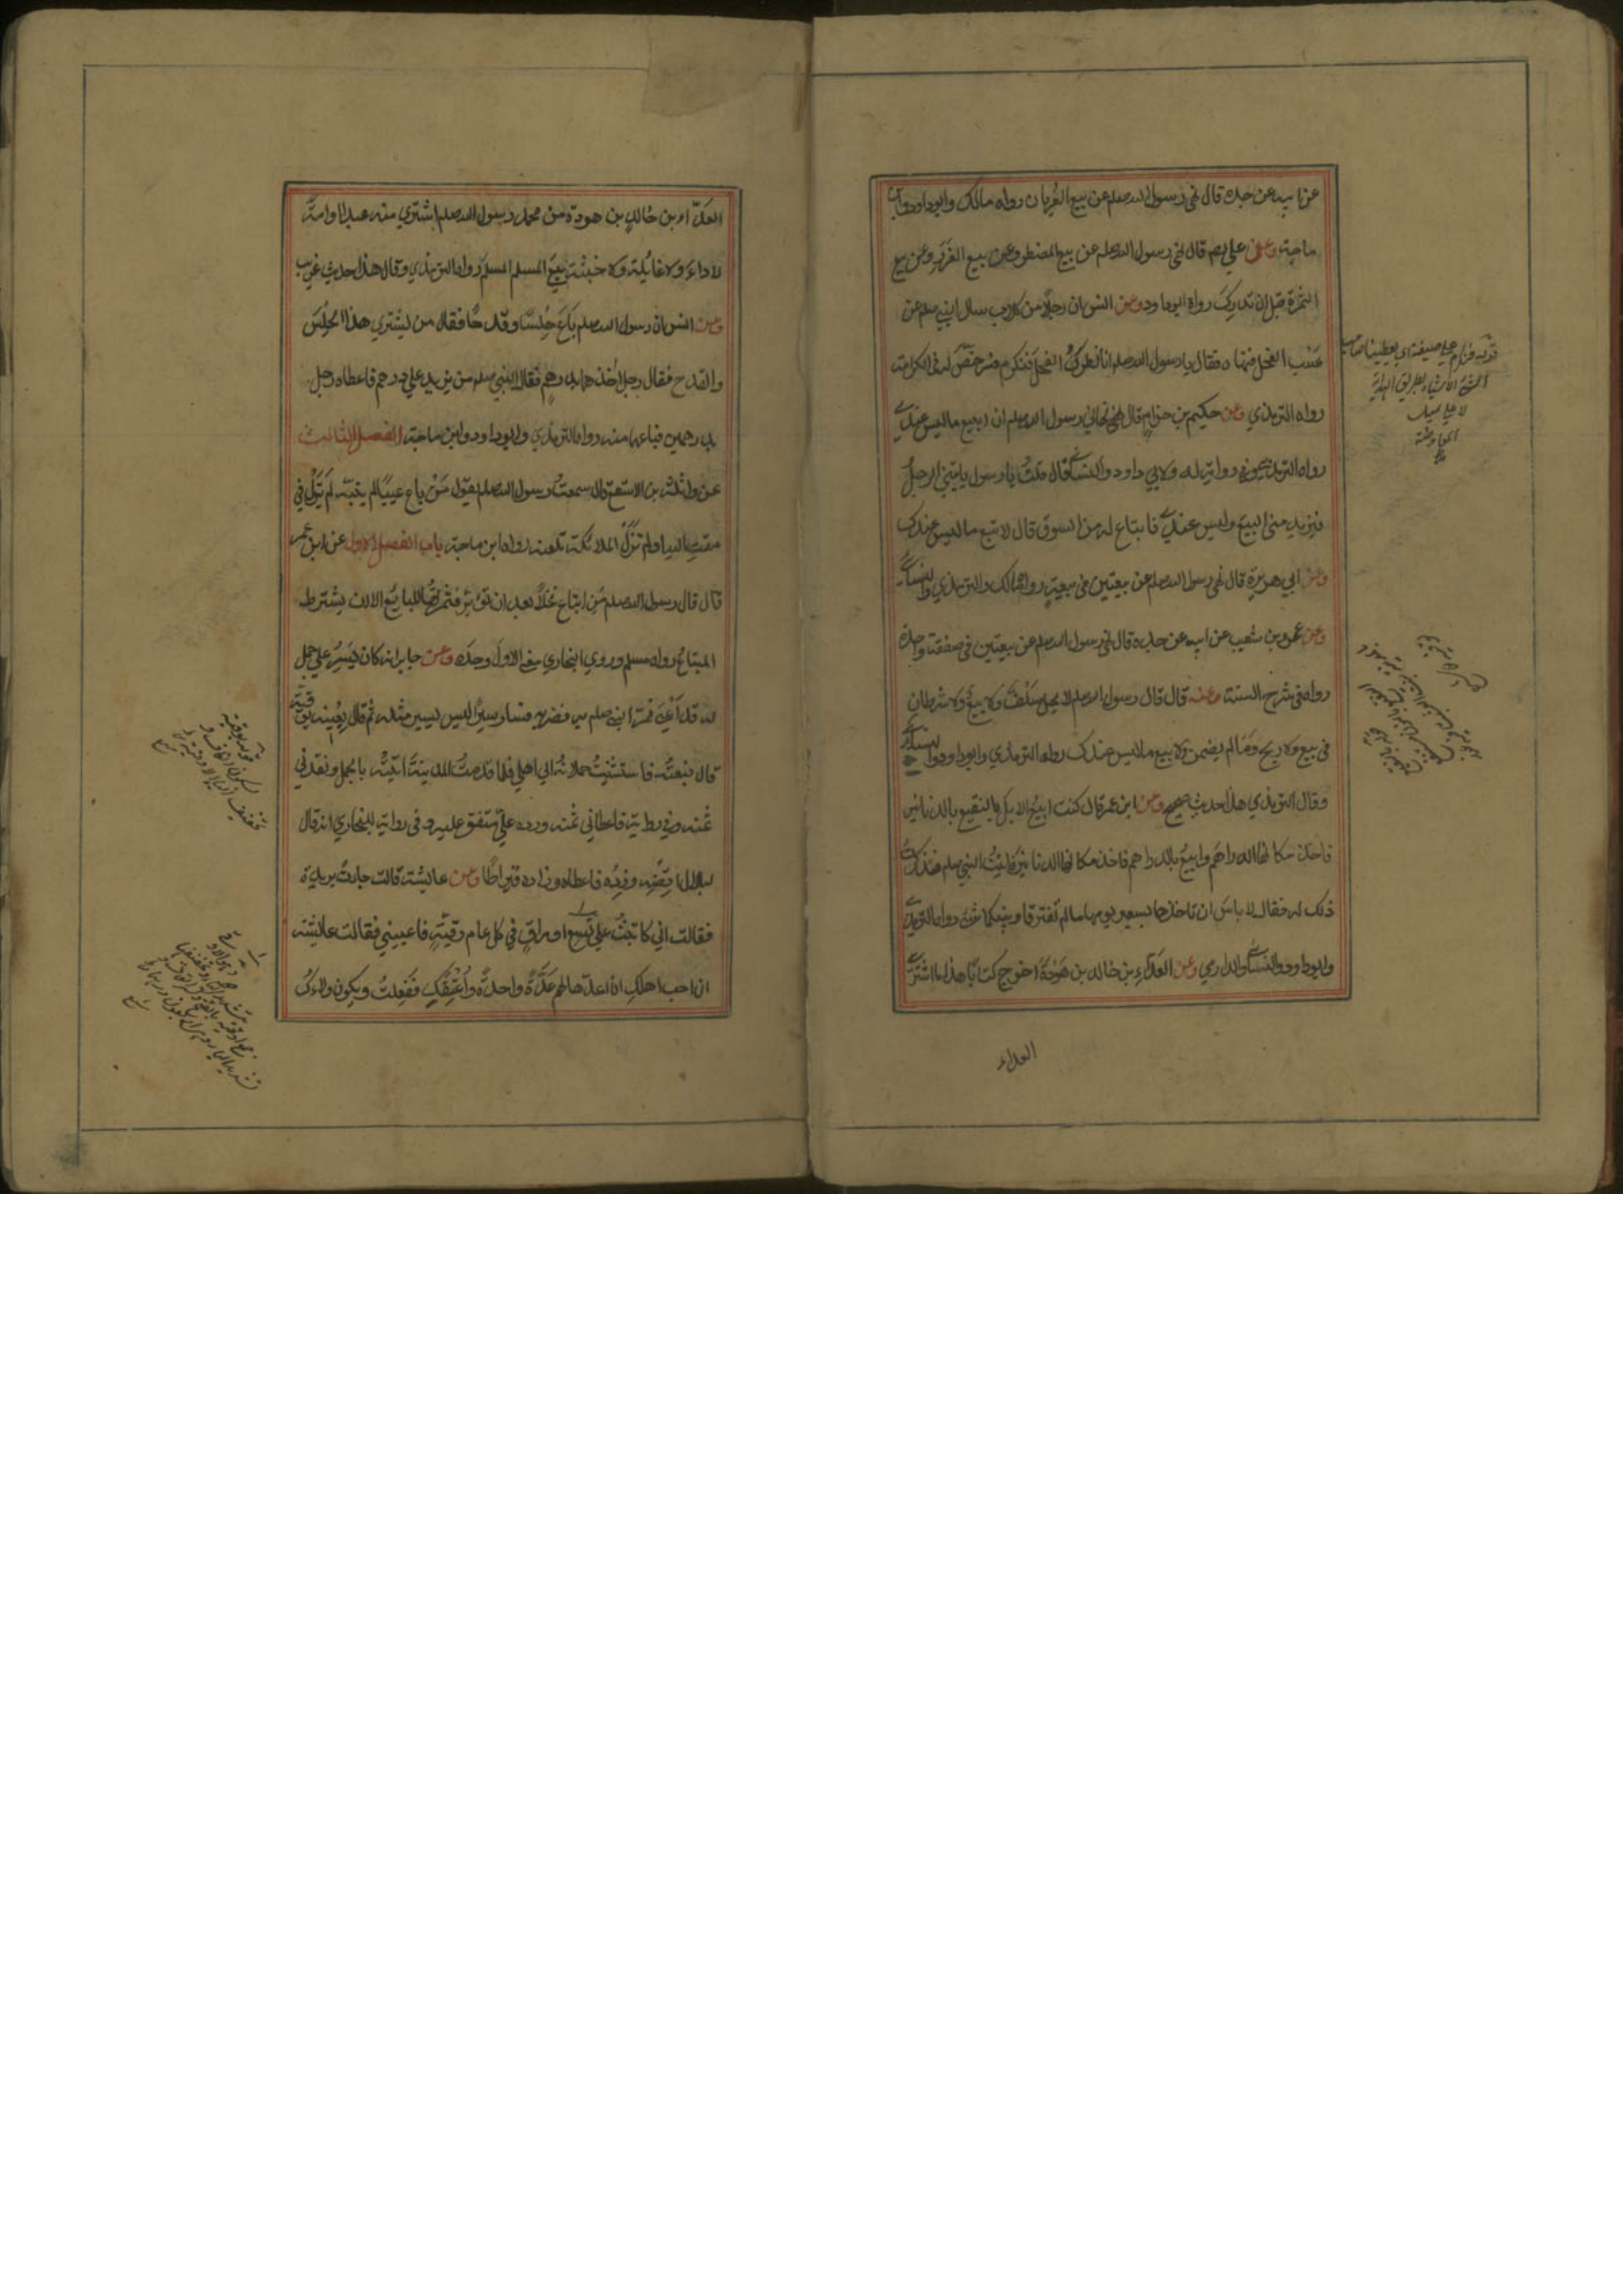 عن ابيه عن جده قال نهى رسول الله صلعم عن بيع العُربان رواه مالك وابوداود وابن
ماجة وعن علي رضـ قال نهى رسول الله صلعم عن بيع المضطر وعن بيع الغَرَرِ وعن بيع
الثمرة قبل ان تدرِكَ رواه ابوداود وعن انس ان رجلاً من كلاب سال النبي صلعم عن
عَسْبِ الفحل فنهاه فقال يا رسول الله صلعم انا نُطرِقُ الفحلَ فنُكرَم فرخّصَ له فى الكرامة
رواه الترمذي وعن حكيم بن حزامٍ قال نهاني رسول الله صلعم ان ابيع ما ليس عندي
رواه الترمذي وفي رواية له ولابي داود والنسائي قال قلتُ يا رسول ياتيني الرجلُ
فيريد مني البيعَ وليس عندي فابتاع له من السوق قال لا تبع ما ليس عندك
وعن ابي هريرة قال نهى رسول الله صلعم عن بيعتين فى بيعةٍ رواه مالك والترمذي والنسائي
وعن عمرو بن شعيب عن ابيه عن جده قال نهى رسول الله صلعم عن بيعتين فى صفقة واحدة
رواه فى شرح السنة وعنه قال قال رسول الله صلعم لا يحل سَلَفٌ وَلا بيعٌ ولا شرطان
فى بيع ولا ربح ما لم يضمن ولا بيع ما ليس عندك رواه الترمذي وابوداود والنسائي
وقال الترمذي هذا حديث صحيح وعن ابن عمر قال كنت ابيعُ الابل بالنقيع بالدنانير
فاخذ مكانها الدراهم وابيعُ بالدراهم فاخذ مكانها الدنانير فاتيتُ النبي صلعم فذكرتُ
ذلك له فقال لا باس ان تاخذها بسعر يومها ما لم تفترقا وبينكما شئ رواه الترمذي
وابوداود والنسائي والدارمي وعن العَدّاءِ بن خالد بن هَوْذَةَ اخرج كتابًا هذا ما اشترى
العداء
العَدّاء بن خالدِ بن هوذة من محمد رسول الله صلعم اشتري منه عبدا او امةً
لا داءَ ولا غائلة ولا خبثة بيعَ المسلم المسلمَ رواه الترمذي وقال هذا حديث غريب
وعن انس ان رسول الله صلعم باعَ حِلسًا وقدحًا فقال من يشتري هذا الحِلسَ
والقدح فقال رجل اخذهما بدرهم فقال النبي صلعم من يزيد علي درهم فاعطاه رجل
بدرهمين فباعهما منه رواه الترمذي وابوداود وابن ماجة الفصل الثالث
عن واثلة بن الاسقع قال سمعتُ رسول الله صلعم يقول مَنْ باع عيبًا لم ينبّه لَم يَزَلْ في
مقتِ الله او لم تَزَلْ الملائكة تلعنه رواه ابن ماجة باب الفصل الاول عن ابن عمر
قال قال رسول الله صلعم مَن ابتاع نخلاً بعد ان تؤبّر فثمرتها للبائع الا ان يشترط
المبتاعُ رواه مسلم وروي البخاري معني الاولَ وحدَه وعن جابر انه كان يَسيرُ علي جمل
له قد اَعْيَا فمرّ النبي صلعم به فضربه فسار سيرًا ليس يسير مثله ثم قال بِعْنِيه بوقيّة
قال فبعتُه فاستثنيتُ حملانه الي اهلي فلما قدمتُ المدينة اتيتُه بالجمل ونقدني
ثمنه وفي رواية فاعطاني ثمنه ورده عليّ متفق عليه وفى رواية للبخاري انه قال
لبلال اقضِه وزِده فاعطاه وزاده قيراطًا وعن عايشة قالت جاءت بريرة
فقالت اني كاتبتُ علي تسع اواقٍ في كل عام وقيّةٍ فاعينيني فقالت عايشة
ان احب اهلكِ ان اعدها لهم عَدّةً واحدةً واُعتِقَكِ فَعلتُ ويكون ولاءكِ